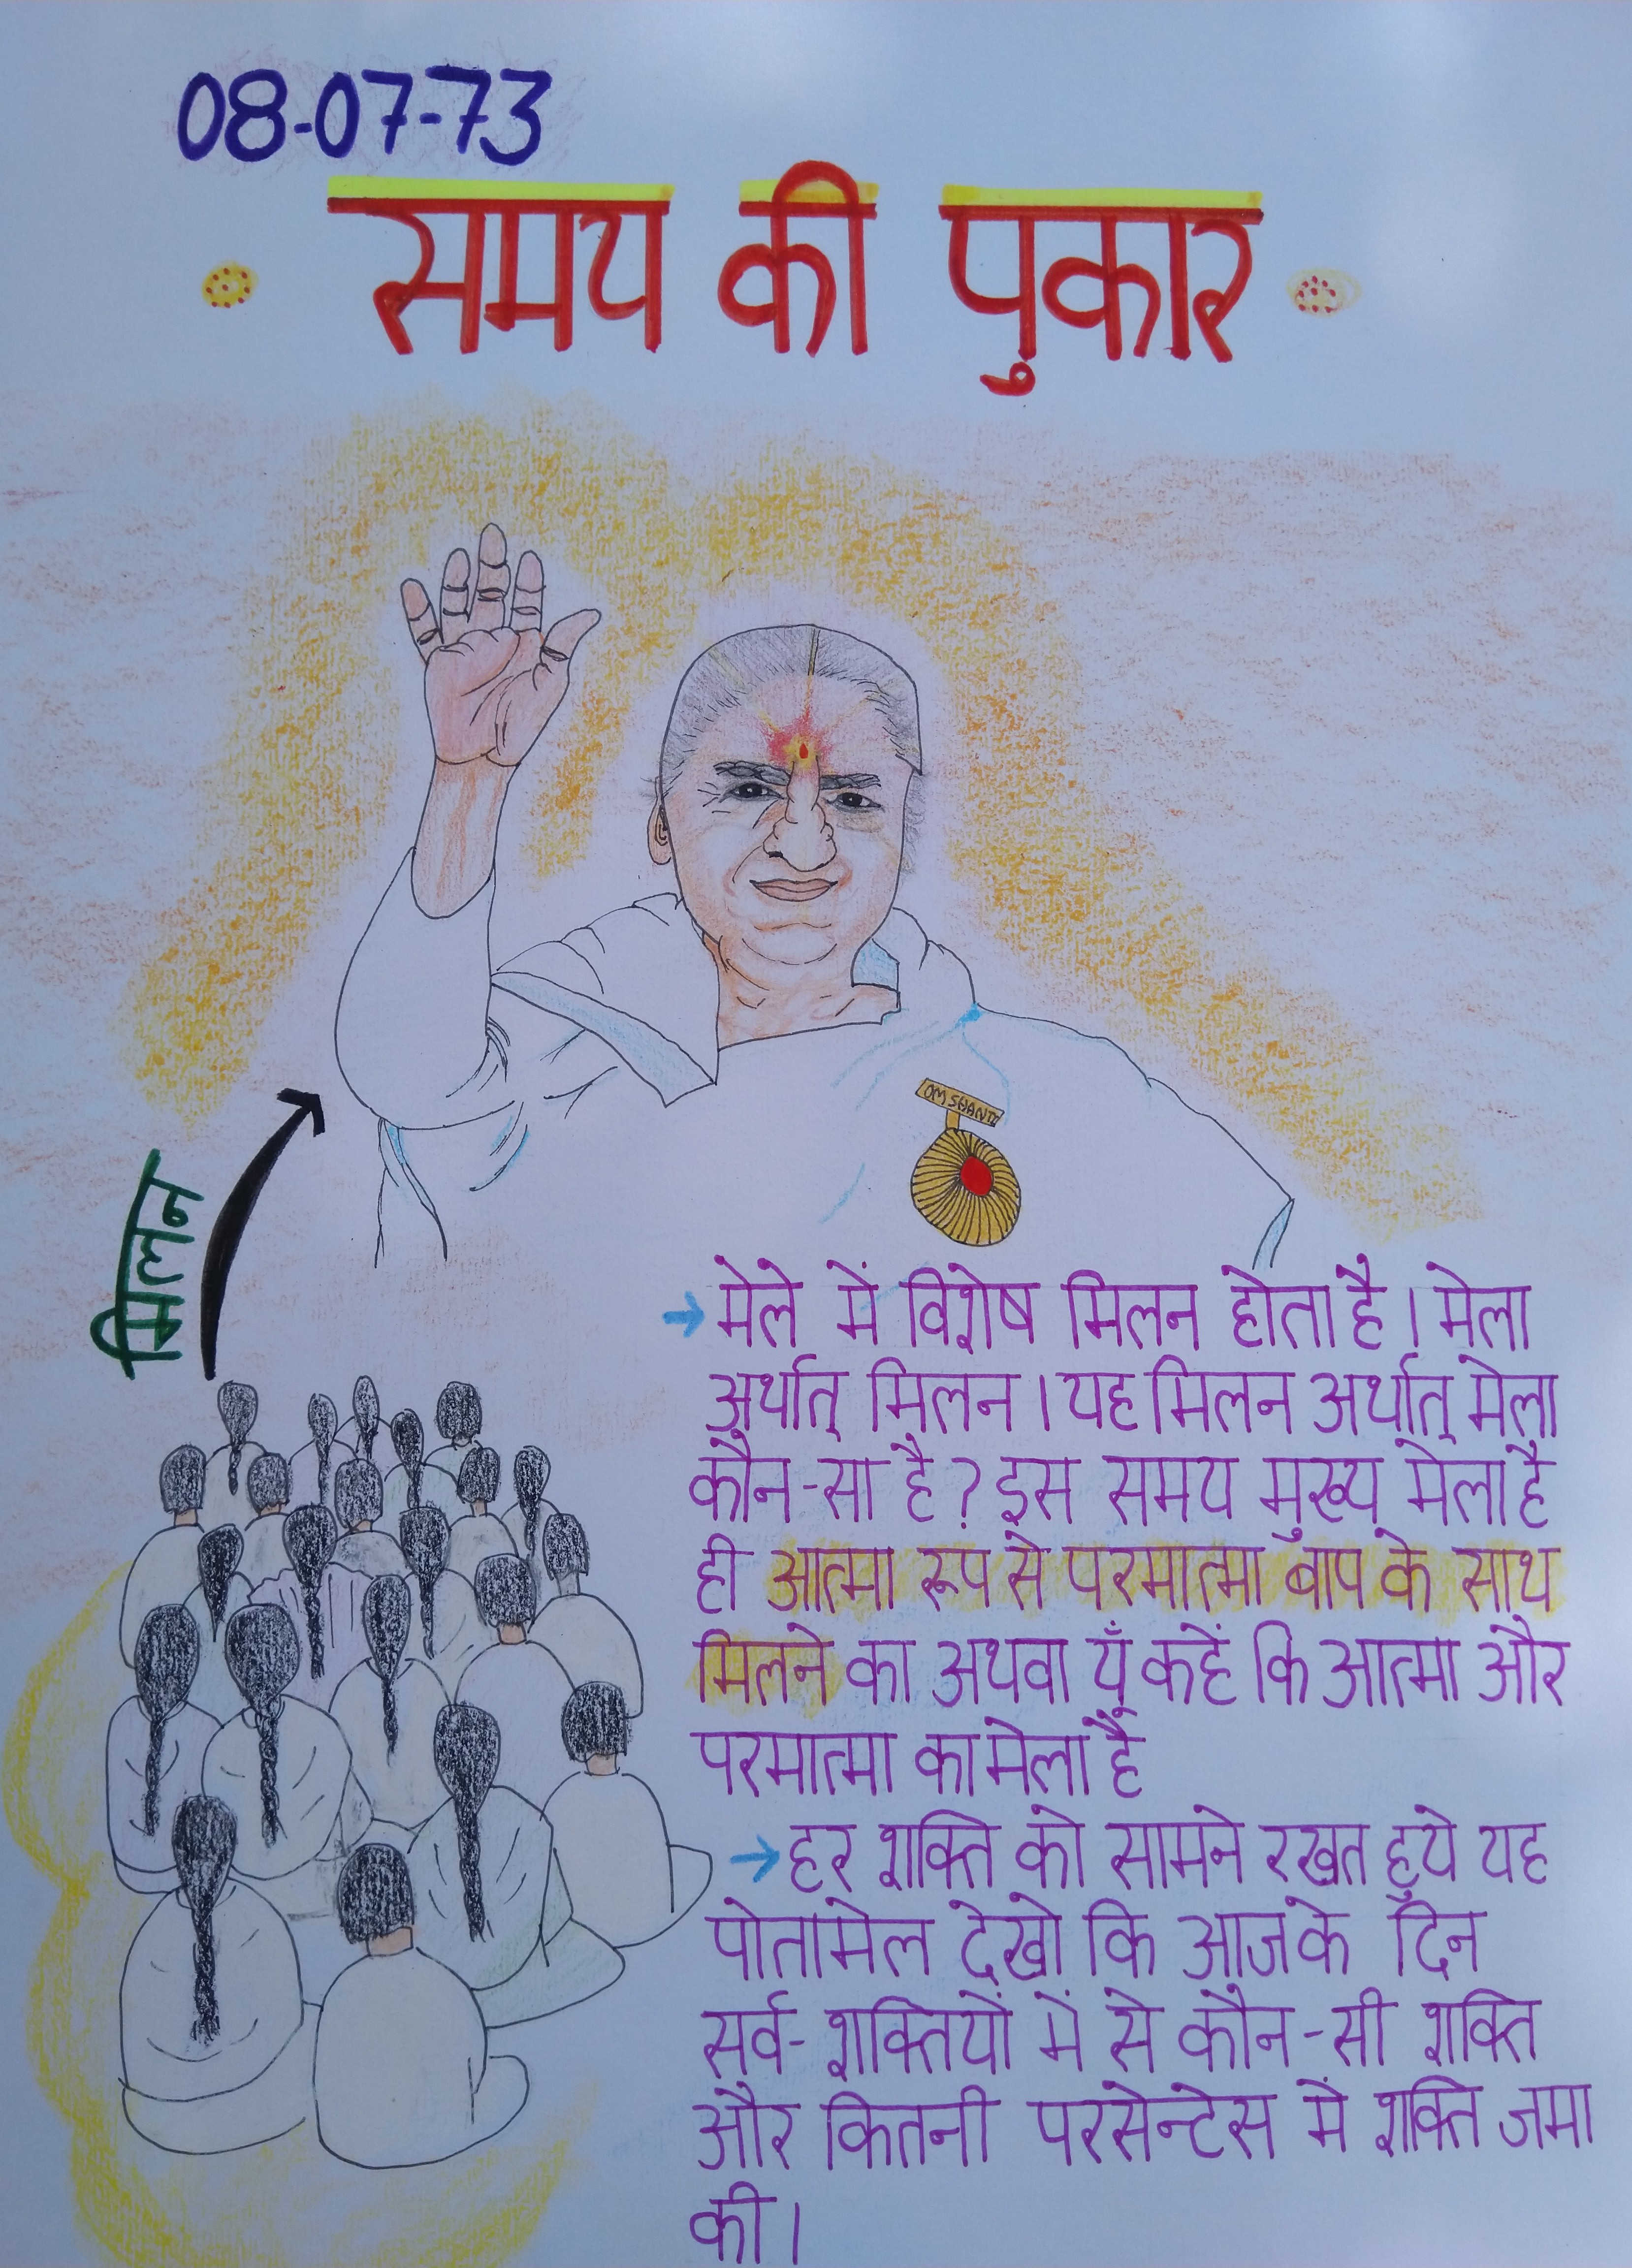 08-07-73
समय की पुकार
OM SHANTI
मिलन
→ मेले में विशेष मिलन होता है। मेला
अर्थात् मिलन। यह मिलन अर्थात् मेला
कौन-सा है? इस समय मुख्य मेला है
ही आत्मा रूप से परमात्मा बाप के साथ
मिलने का अथवा यूँ कहें कि आत्मा और
परमात्मा का मेला है
→ हर शक्ति को सामने रखत हुये यह
पोतामेल देखो कि आज के दिन
सर्व-शक्तियों में से कौन-सी शक्ति
और कितनी परसेन्टेस में शक्ति जमा
की।